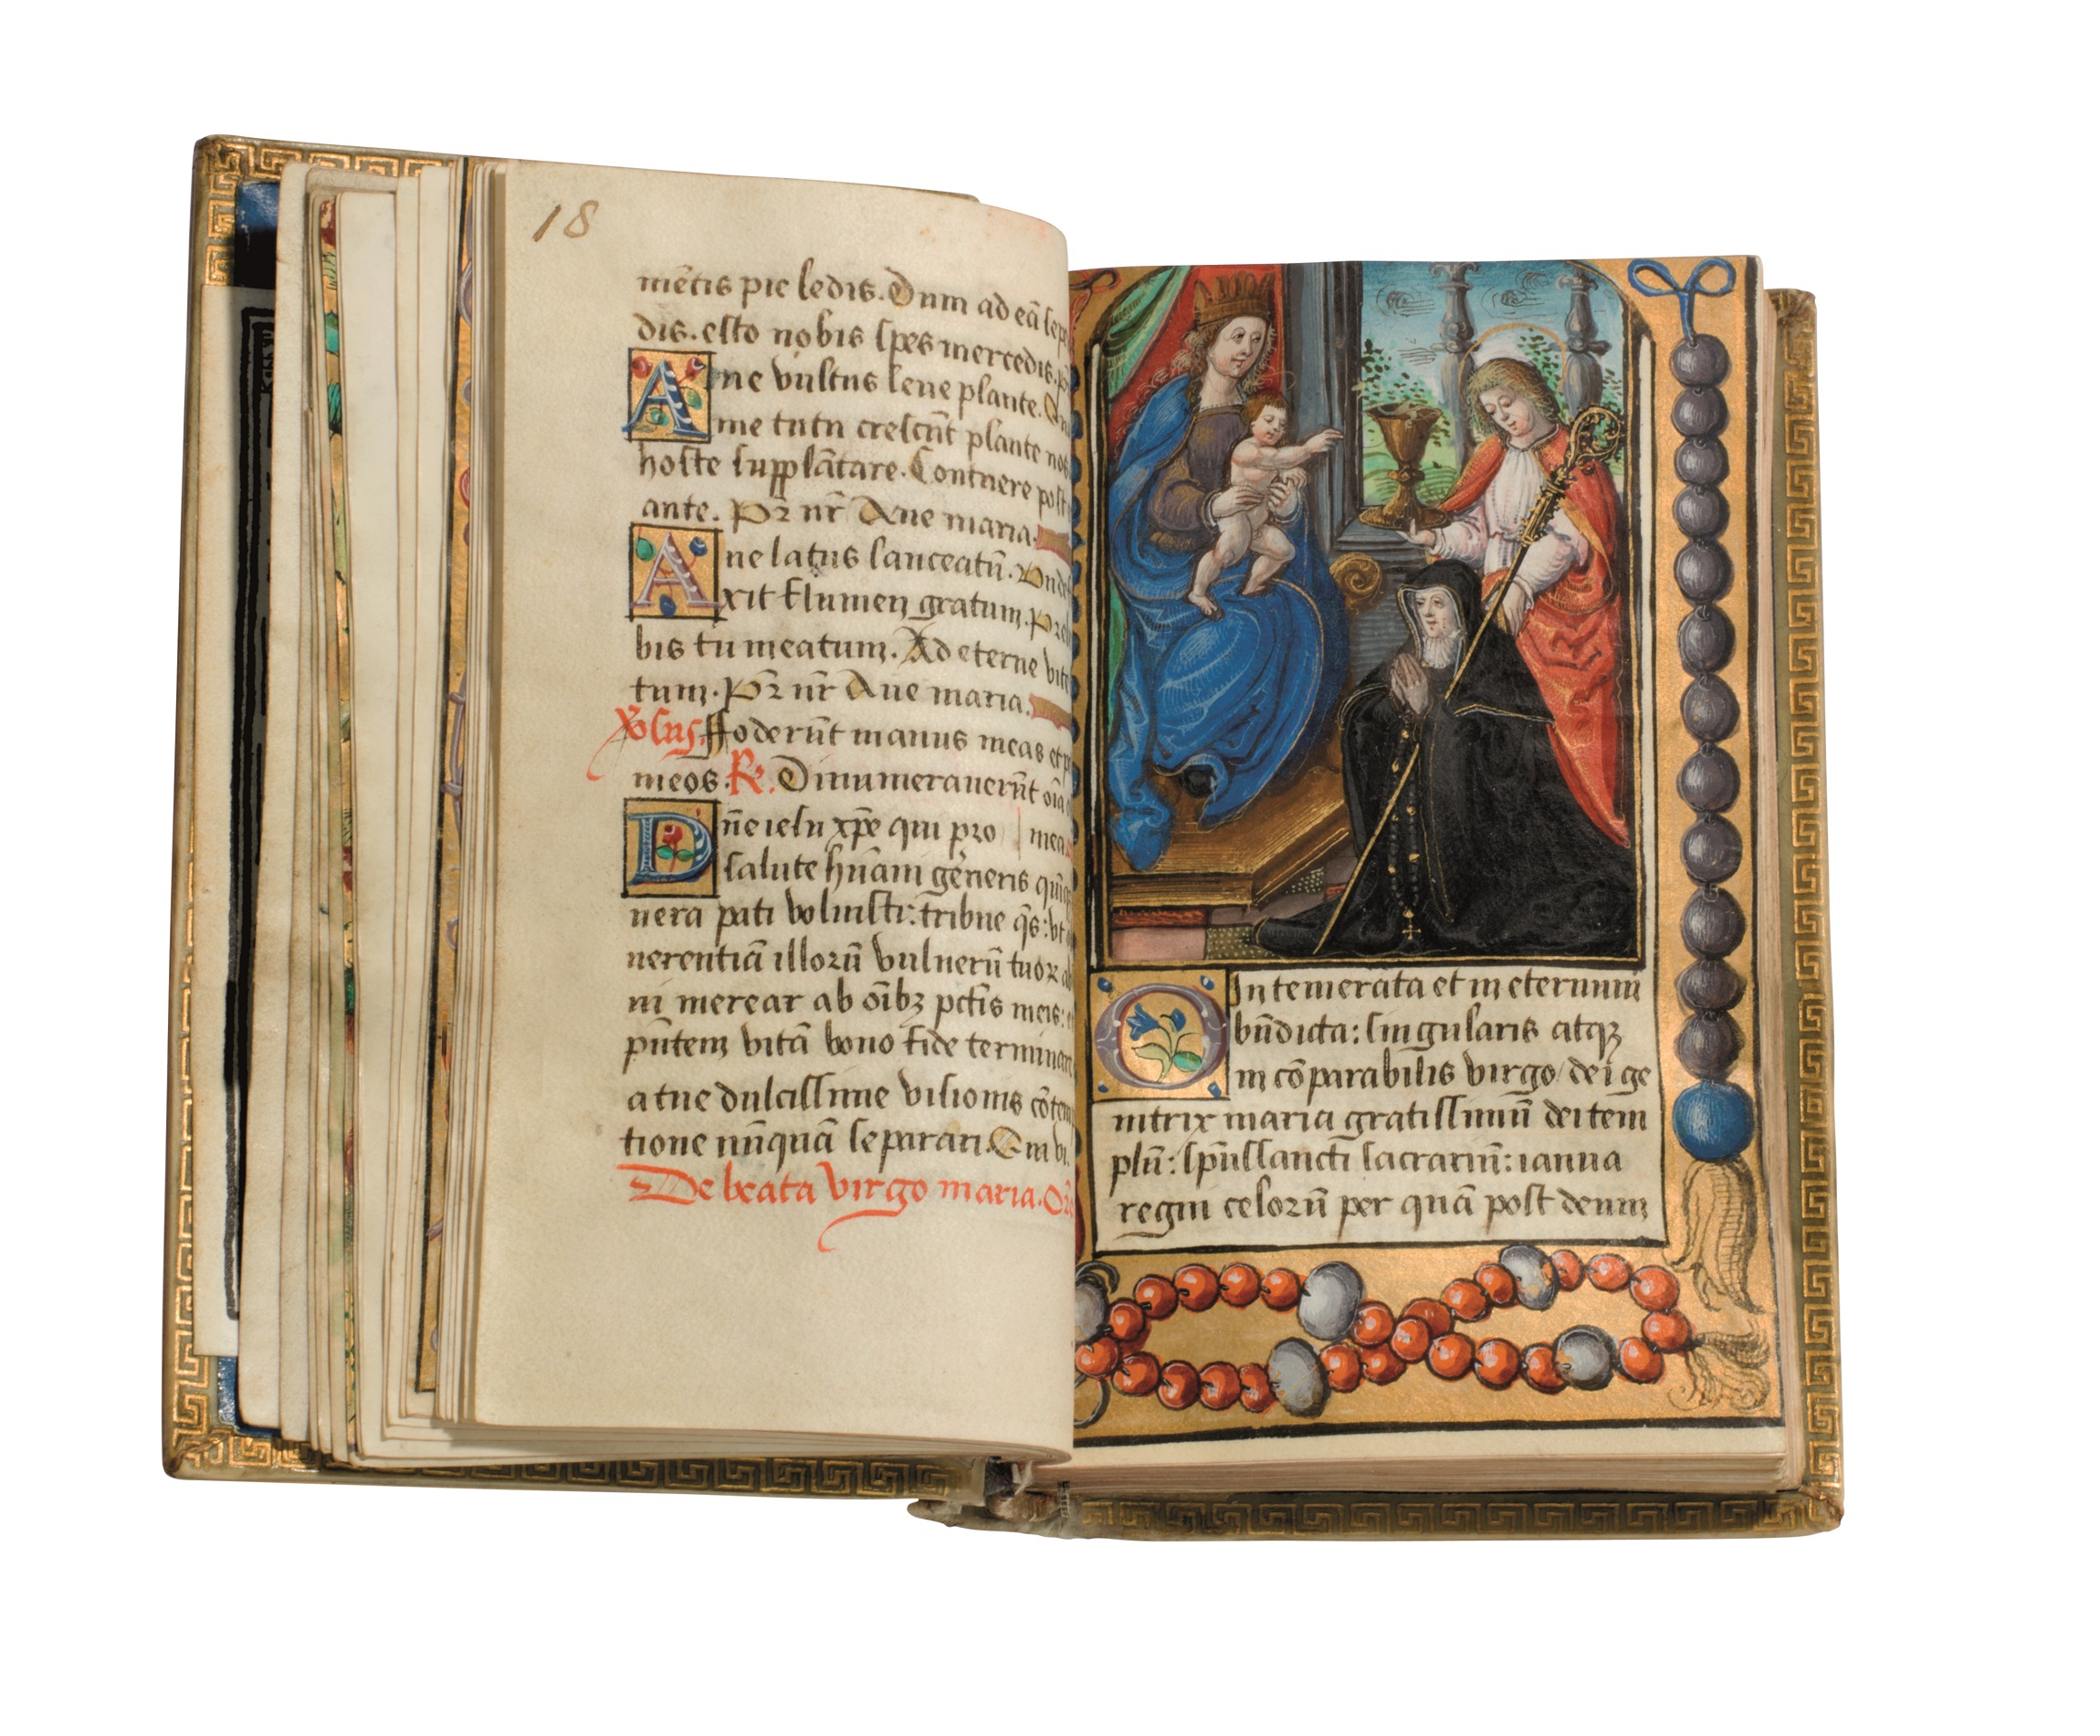 18
mẽtis pie ledis. Dum ad eã sepe
dis. esto nobis spes mercedis.
Aue vultus leue plante.
me tutu crescũt plante nos
hoste supplãtare. Conterere post
ante. Pr̃ nr̃ Aue maria
Aue latus lanceatũ. Vnde
xit flumen gratum. Pre
bis tu meatum. Ad eterne vite
tum. Pr̃ nr̃ Aue maria.
ỹsus. ffoderũt manus meas et
meos. R. Dinumerauerũt oĩa
Dñe iesu xp̃e qui pro mea
salute hũani generis
nera pati voluisti: tribue q̃s: vt
uerentiã illorũ vulnerũ tuoꝝ
ni merear ab oĩbꝫ pctĩs meis:
pñtem vitã bono fide terminare
a tue dulcissime visionis cõtem
tione nũquã separari. Qui vi
De beata virgo maria. Orõ
O Intemerata et in eternum
bñdicta: singularis atqꝫ
in cõparabilis virgo dei ge
nitrix maria gratissimũ dei tem
plũ: spũssancti sacrariũ: ianua
regni celorũ per quã post deum